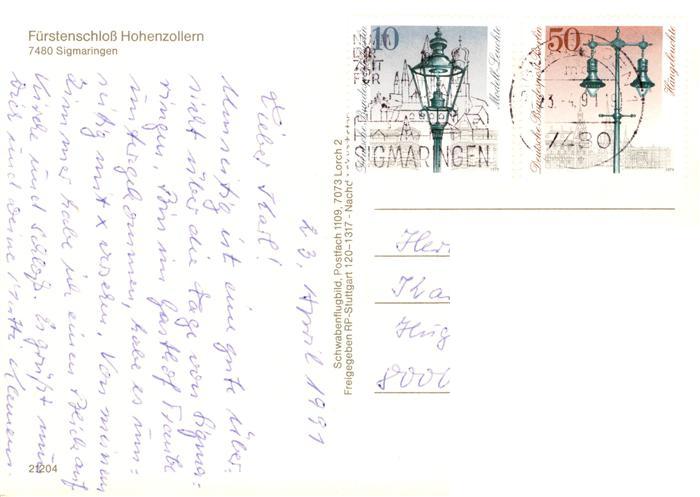 Fürstenschloß Hohenzollern
7480 Sigmaringen
23. April 1991
Lieber Karl!
Umseitig ist eine gute Über-
sicht über die Lage von Sigma-
ringen. Bin im Gasthof Traube
untergekommen, habe es um-
seitig mit x versehen. Von meinem
Zimmer habe ich einen Blick auf
Kirche und Schloß. Es grüßt nun
Dich und Deine Mutti Klemens.
21204
Schwabenflugbild, Postfach 1109, 7073 Lorch 2
Freigegeben RP-Stuttgart 120-1317 - Nachd
10
Deutsche Bundespost Berlin
Modell-Leuchte
1979
50
Deutsche Bundespost Berlin
Hängeleuchte
1979
SIGMARINGEN
3.-4.91
7480
Her
Ka
Hug
8000